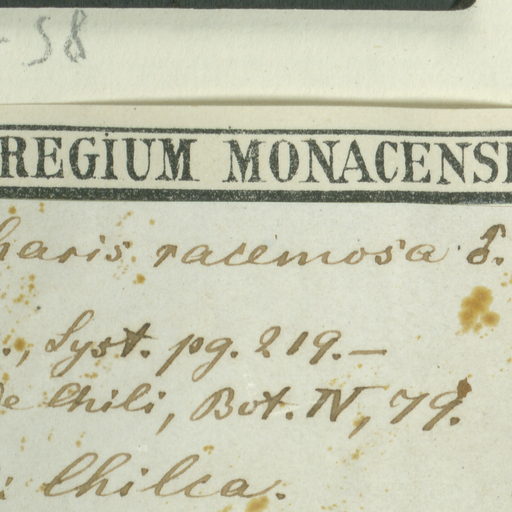 -58
REGIUM MONACENSE
haris racemosa ♂.
., Syst. pg. 219.—
de Chili, Bot. IV, 79.
: Chilca.